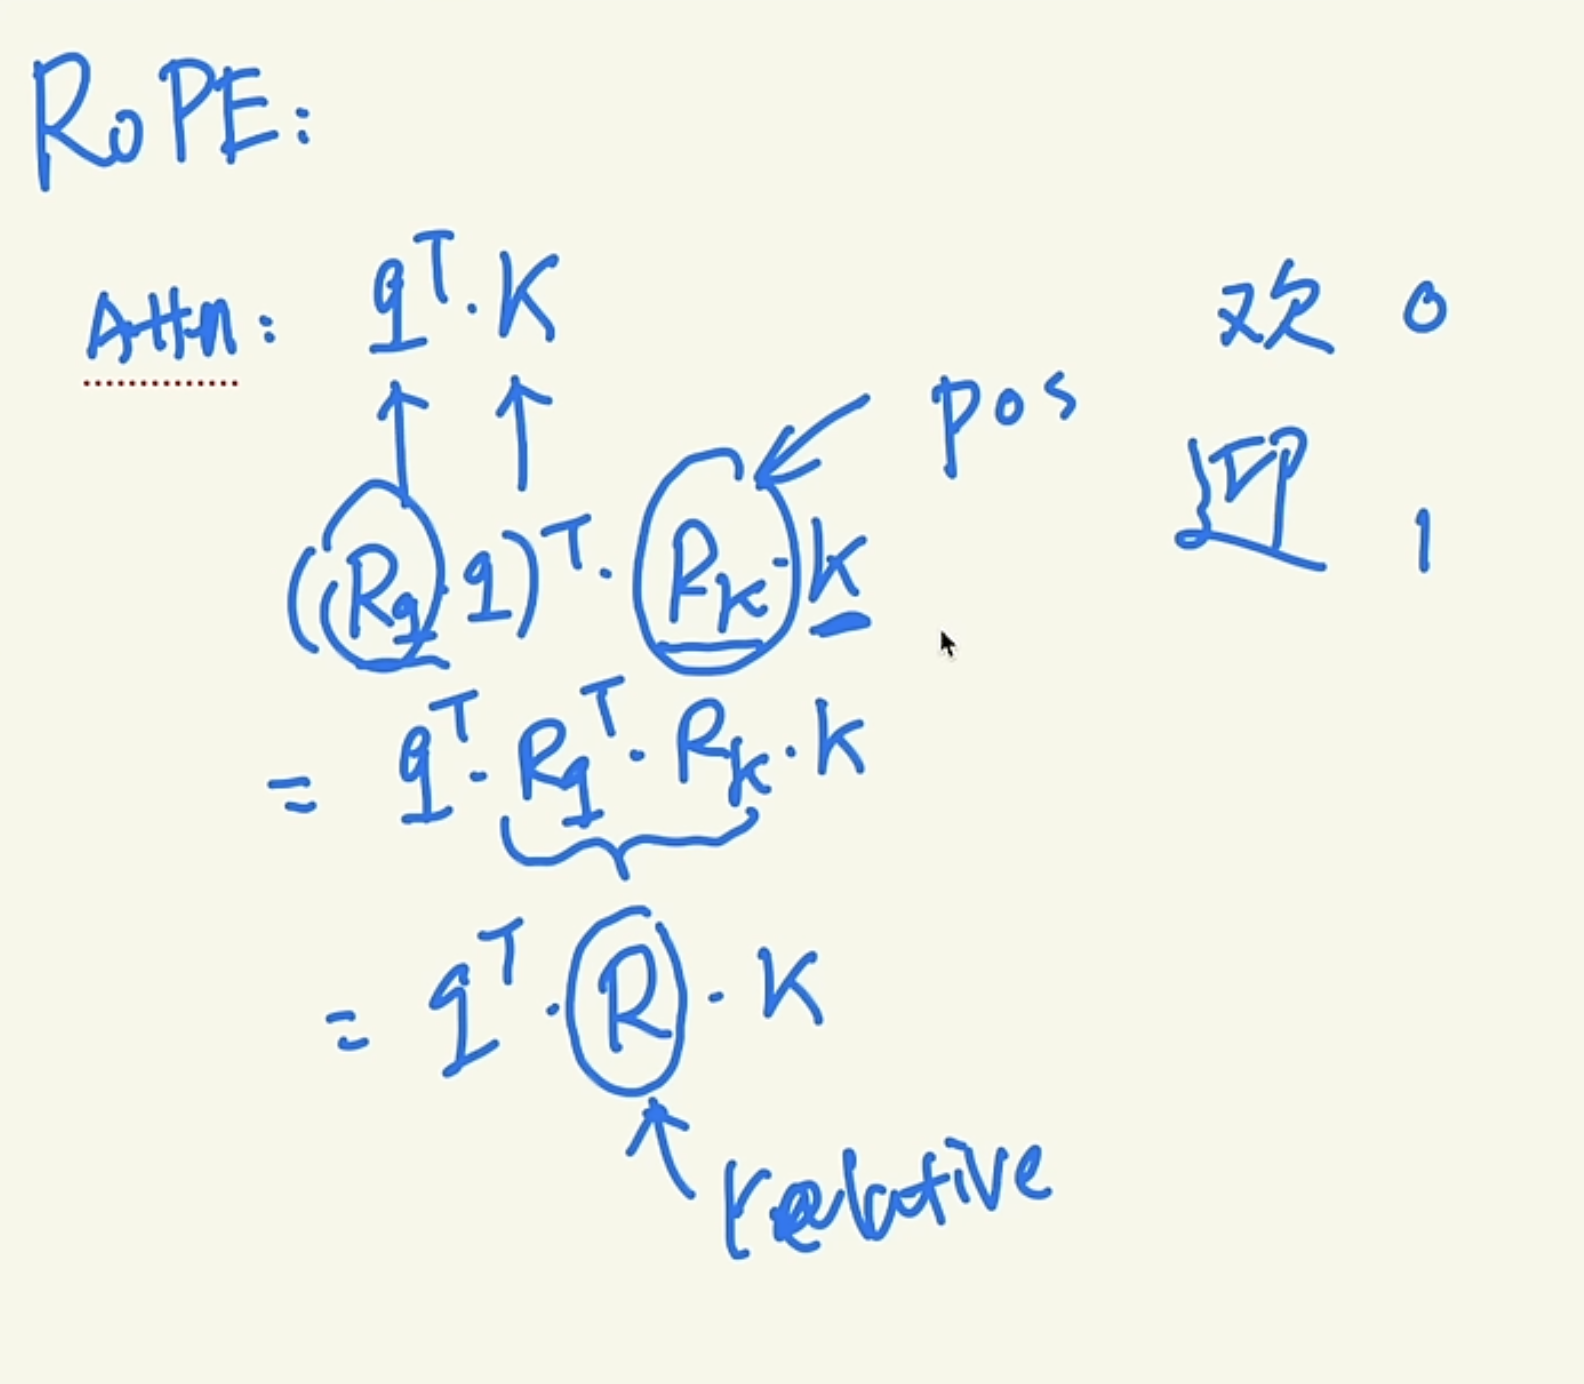 RoPE:
Attn: qᵀ·K
欢 0
pos
迎 1
(R_q·q)ᵀ·R_k·k
= qᵀ·R_qᵀ·R_k·k
= qᵀ·R·K
relative